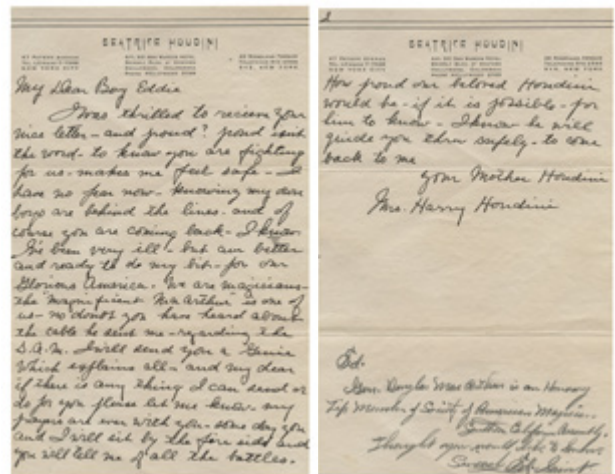 BEATRICE HOUDINI
NEW YORK CITY
My Dear Boy Eddie
I was thrilled to receive your
nice letter - and proud? proud isn't
the word - to know you are fighting
for us - makes me feel safe - I
have no fear now - knowing my dear
boys are behind the lines - and of
course you are coming back - I know.
I've been very ill - but am better
and ready to do my bit - for our
Glorious America. We are magicians -
the "magnificent" MacArthur is one of
us - no doubt you have heard about
the cable he sent me - regarding the
S.A.M. I will send you a Genie
which explains all - and my dear
if there is any thing I can send or
do for you please let me know - my
prayers are ever with you - some day you
and I will sit by the fire side and
you will tell me of all the battles.
2
BEATRICE HOUDINI
NEW YORK CITY
How proud our beloved Houdini
would be - if it is possible - for
him to know - I know he will
guide you thru safely - to come
back to me
your Mother Houdini
Mrs. Harry Houdini
Ed.
Gen. Douglas MacArthur is an Honorary
Life Member of Society of American Magicians.
Southern California Assembly.
Thought you would like to know.